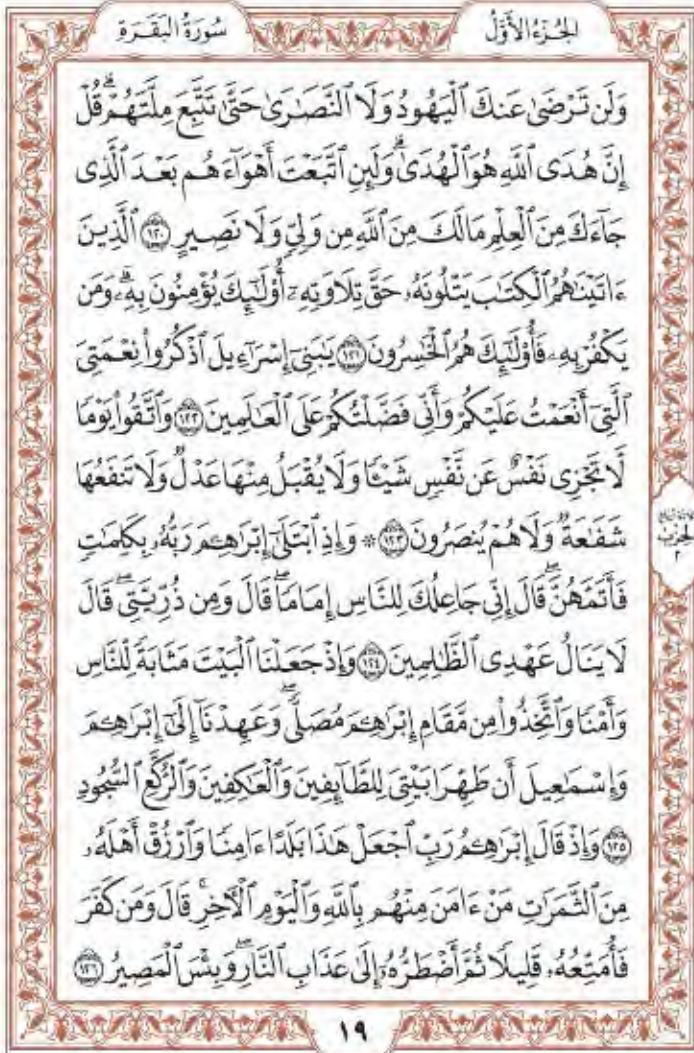 الجُزْءُ الأَوَّلُ
سُورَةُ البَقَرَةِ
وَلَن تَرْضَىٰ عَنكَ ٱلْيَهُودُ وَلَا ٱلنَّصَٰرَىٰ حَتَّىٰ تَتَّبِعَ مِلَّتَهُمْۗ قُلْ
إِنَّ هُدَى ٱللَّهِ هُوَ ٱلْهُدَىٰۗ وَلَئِنِ ٱتَّبَعْتَ أَهْوَآءَهُم بَعْدَ ٱلَّذِى
جَآءَكَ مِنَ ٱلْعِلْمِ مَا لَكَ مِنَ ٱللَّهِ مِن وَلِىٍّ وَلَا نَصِيرٍ ١٢٠ ٱلَّذِينَ
ءَاتَيْنَٰهُمُ ٱلْكِتَٰبَ يَتْلُونَهُۥ حَقَّ تِلَاوَتِهِۦٓ أُو۟لَٰٓئِكَ يُؤْمِنُونَ بِهِۦۗ وَمَن
يَكْفُرْ بِهِۦ فَأُو۟لَٰٓئِكَ هُمُ ٱلْخَٰسِرُونَ ١٢١ يَٰبَنِىٓ إِسْرَٰٓءِيلَ ٱذْكُرُوا۟ نِعْمَتِىَ
ٱلَّتِىٓ أَنْعَمْتُ عَلَيْكُمْ وَأَنِّى فَضَّلْتُكُمْ عَلَى ٱلْعَٰلَمِينَ ١٢٢ وَٱتَّقُوا۟ يَوْمًا
لَّا تَجْزِى نَفْسٌ عَن نَّفْسٍ شَيْـًٔا وَلَا يُقْبَلُ مِنْهَا عَدْلٌ وَلَا تَنفَعُهَا
شَفَٰعَةٌ وَلَا هُمْ يُنصَرُونَ ١٢٣ ۞ وَإِذِ ٱبْتَلَىٰٓ إِبْرَٰهِـۧمَ رَبُّهُۥ بِكَلِمَٰتٍ
فَأَتَمَّهُنَّۖ قَالَ إِنِّى جَاعِلُكَ لِلنَّاسِ إِمَامًاۖ قَالَ وَمِن ذُرِّيَّتِىۖ قَالَ
لَا يَنَالُ عَهْدِى ٱلظَّٰلِمِينَ ١٢٤ وَإِذْ جَعَلْنَا ٱلْبَيْتَ مَثَابَةً لِّلنَّاسِ
وَأَمْنًا وَٱتَّخِذُوا۟ مِن مَّقَامِ إِبْرَٰهِـۧمَ مُصَلًّىۖ وَعَهِدْنَآ إِلَىٰٓ إِبْرَٰهِـۧمَ
وَإِسْمَٰعِيلَ أَن طَهِّرَا بَيْتِىَ لِلطَّآئِفِينَ وَٱلْعَٰكِفِينَ وَٱلرُّكَّعِ ٱلسُّجُودِ
١٢٥ وَإِذْ قَالَ إِبْرَٰهِـۧمُ رَبِّ ٱجْعَلْ هَٰذَا بَلَدًا ءَامِنًا وَٱرْزُقْ أَهْلَهُۥ
مِنَ ٱلثَّمَرَٰتِ مَنْ ءَامَنَ مِنْهُم بِٱللَّهِ وَٱلْيَوْمِ ٱلْءَاخِرِۚ قَالَ وَمَن كَفَرَ
فَأُمَتِّعُهُۥ قَلِيلًا ثُمَّ أَضْطَرُّهُۥٓ إِلَىٰ عَذَابِ ٱلنَّارِۖ وَبِئْسَ ٱلْمَصِيرُ ١٢٦
الحِزْبُ
٢
١٩